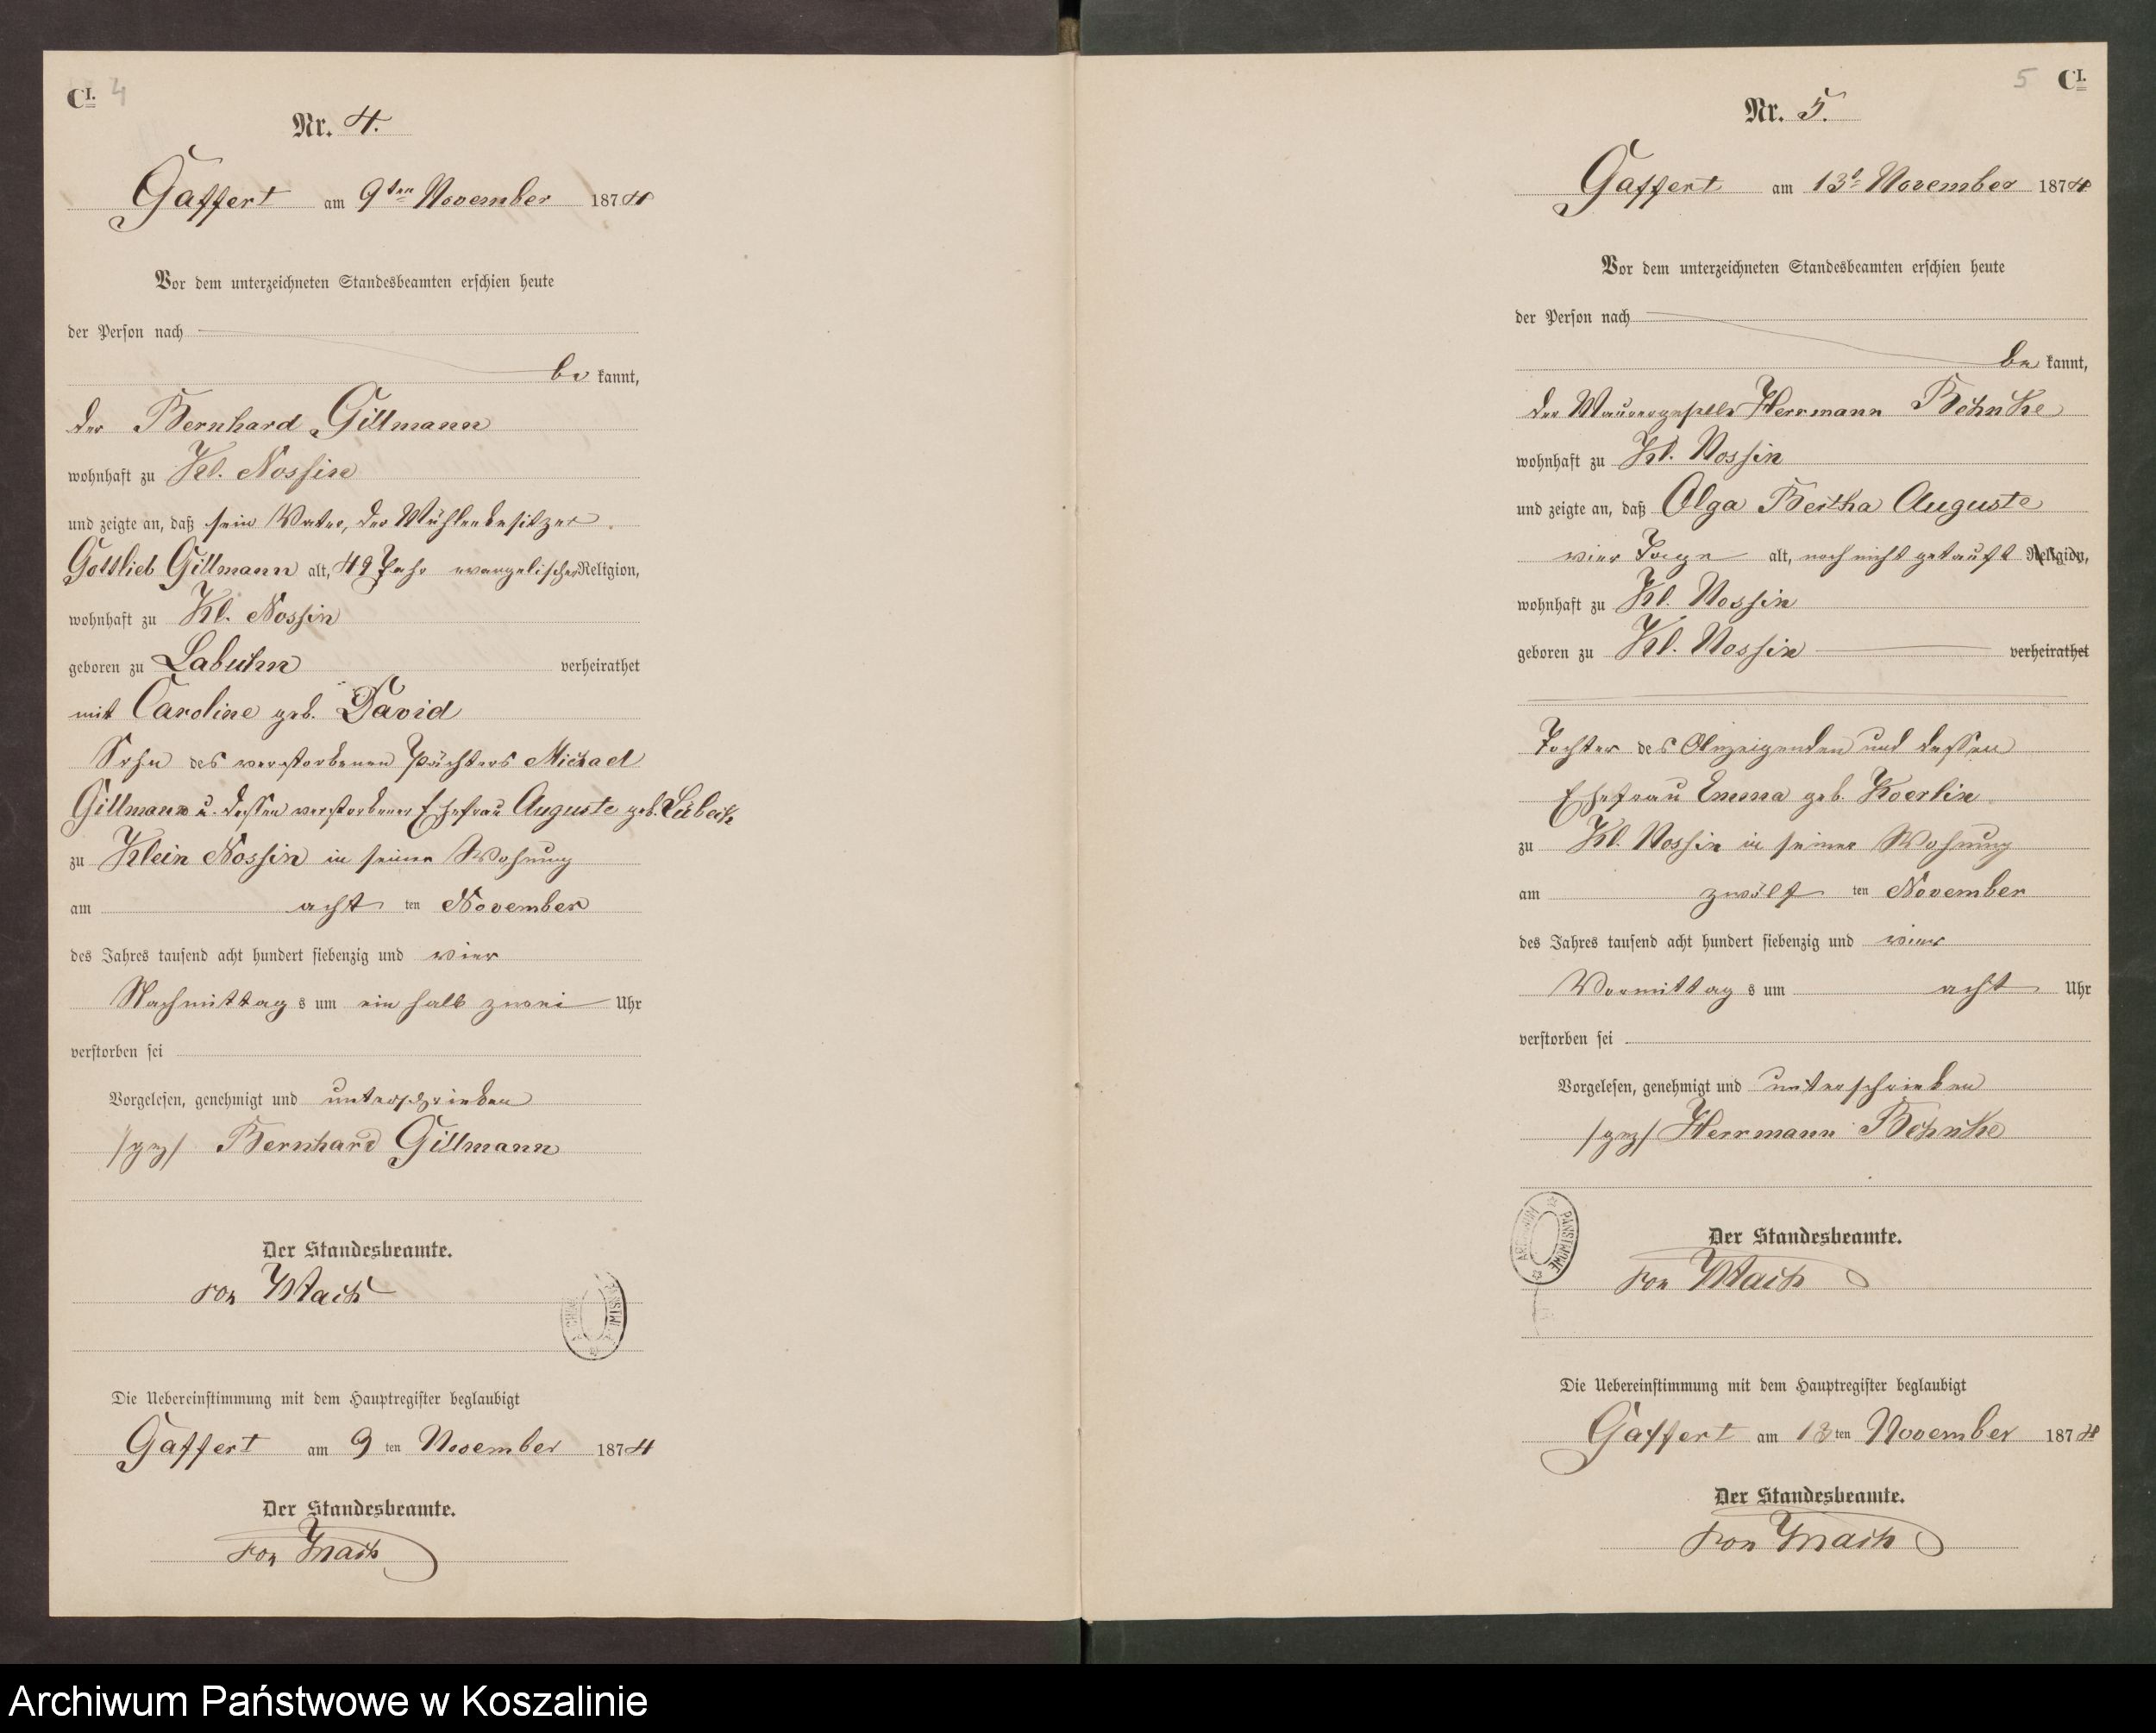 C I. 4
Nr. 4.
Gaffert am 9ten November 1874
Vor dem unterzeichneten Standesbeamten erschien heute
der Person nach
be kannt,
der Bernhard Gillmann
wohnhaft zu Kl. Nossin
und zeigte an, daß sein Vater, der Mühlenbesitzer
Gottlieb Gillmann alt, 49 Jahr evangelischer Religion,
wohnhaft zu Kl. Nossin
geboren zu Labuhn verheirathet
mit Caroline geb. David
Sohn des verstorbenen Pächters Michael
Gillmann u. dessen verstorbener Ehefrau Auguste geb. Lübeck
zu Klein Nossin in seiner Wohnung
am acht ten November
des Jahres tausend acht hundert siebenzig und vier
Nachmittag s um ein halb zwei Uhr
verstorben sei
Vorgelesen, genehmigt und unterschrieben
/gez/ Bernhard Gillmann
Der Standesbeamte.
von Mach
Die Uebereinstimmung mit dem Hauptregister beglaubigt
Gaffert am 9 ten November 1874
Der Standesbeamte.
von Mach
5 C I.
Nr. 5.
Gaffert am 13t November 1874
Vor dem unterzeichneten Standesbeamten erschien heute
der Person nach
be kannt,
der Maurergeselle Herrmann Behnke
wohnhaft zu Kl. Nossin
und zeigte an, daß Olga Bertha Auguste
vier Tage alt, noch nicht getauft Religion,
wohnhaft zu Kl. Nossin
geboren zu Kl. Nossin verheirathet
Tochter des Anzeigenden und dessen
Ehefrau Emma geb. Koerlin
zu Kl. Nossin in seiner Wohnung
am zwölf ten November
des Jahres tausend acht hundert siebenzig und vier
Vormittag s um acht Uhr
verstorben sei
Vorgelesen, genehmigt und unterschrieben
/gez/ Herrmann Behnke
ARCHIWUM PAŃSTWOWE
Der Standesbeamte.
von Mach
Die Uebereinstimmung mit dem Hauptregister beglaubigt
Gaffert am 13 ten November 1874
Der Standesbeamte.
von Mach
Archiwum Państwowe w Koszalinie